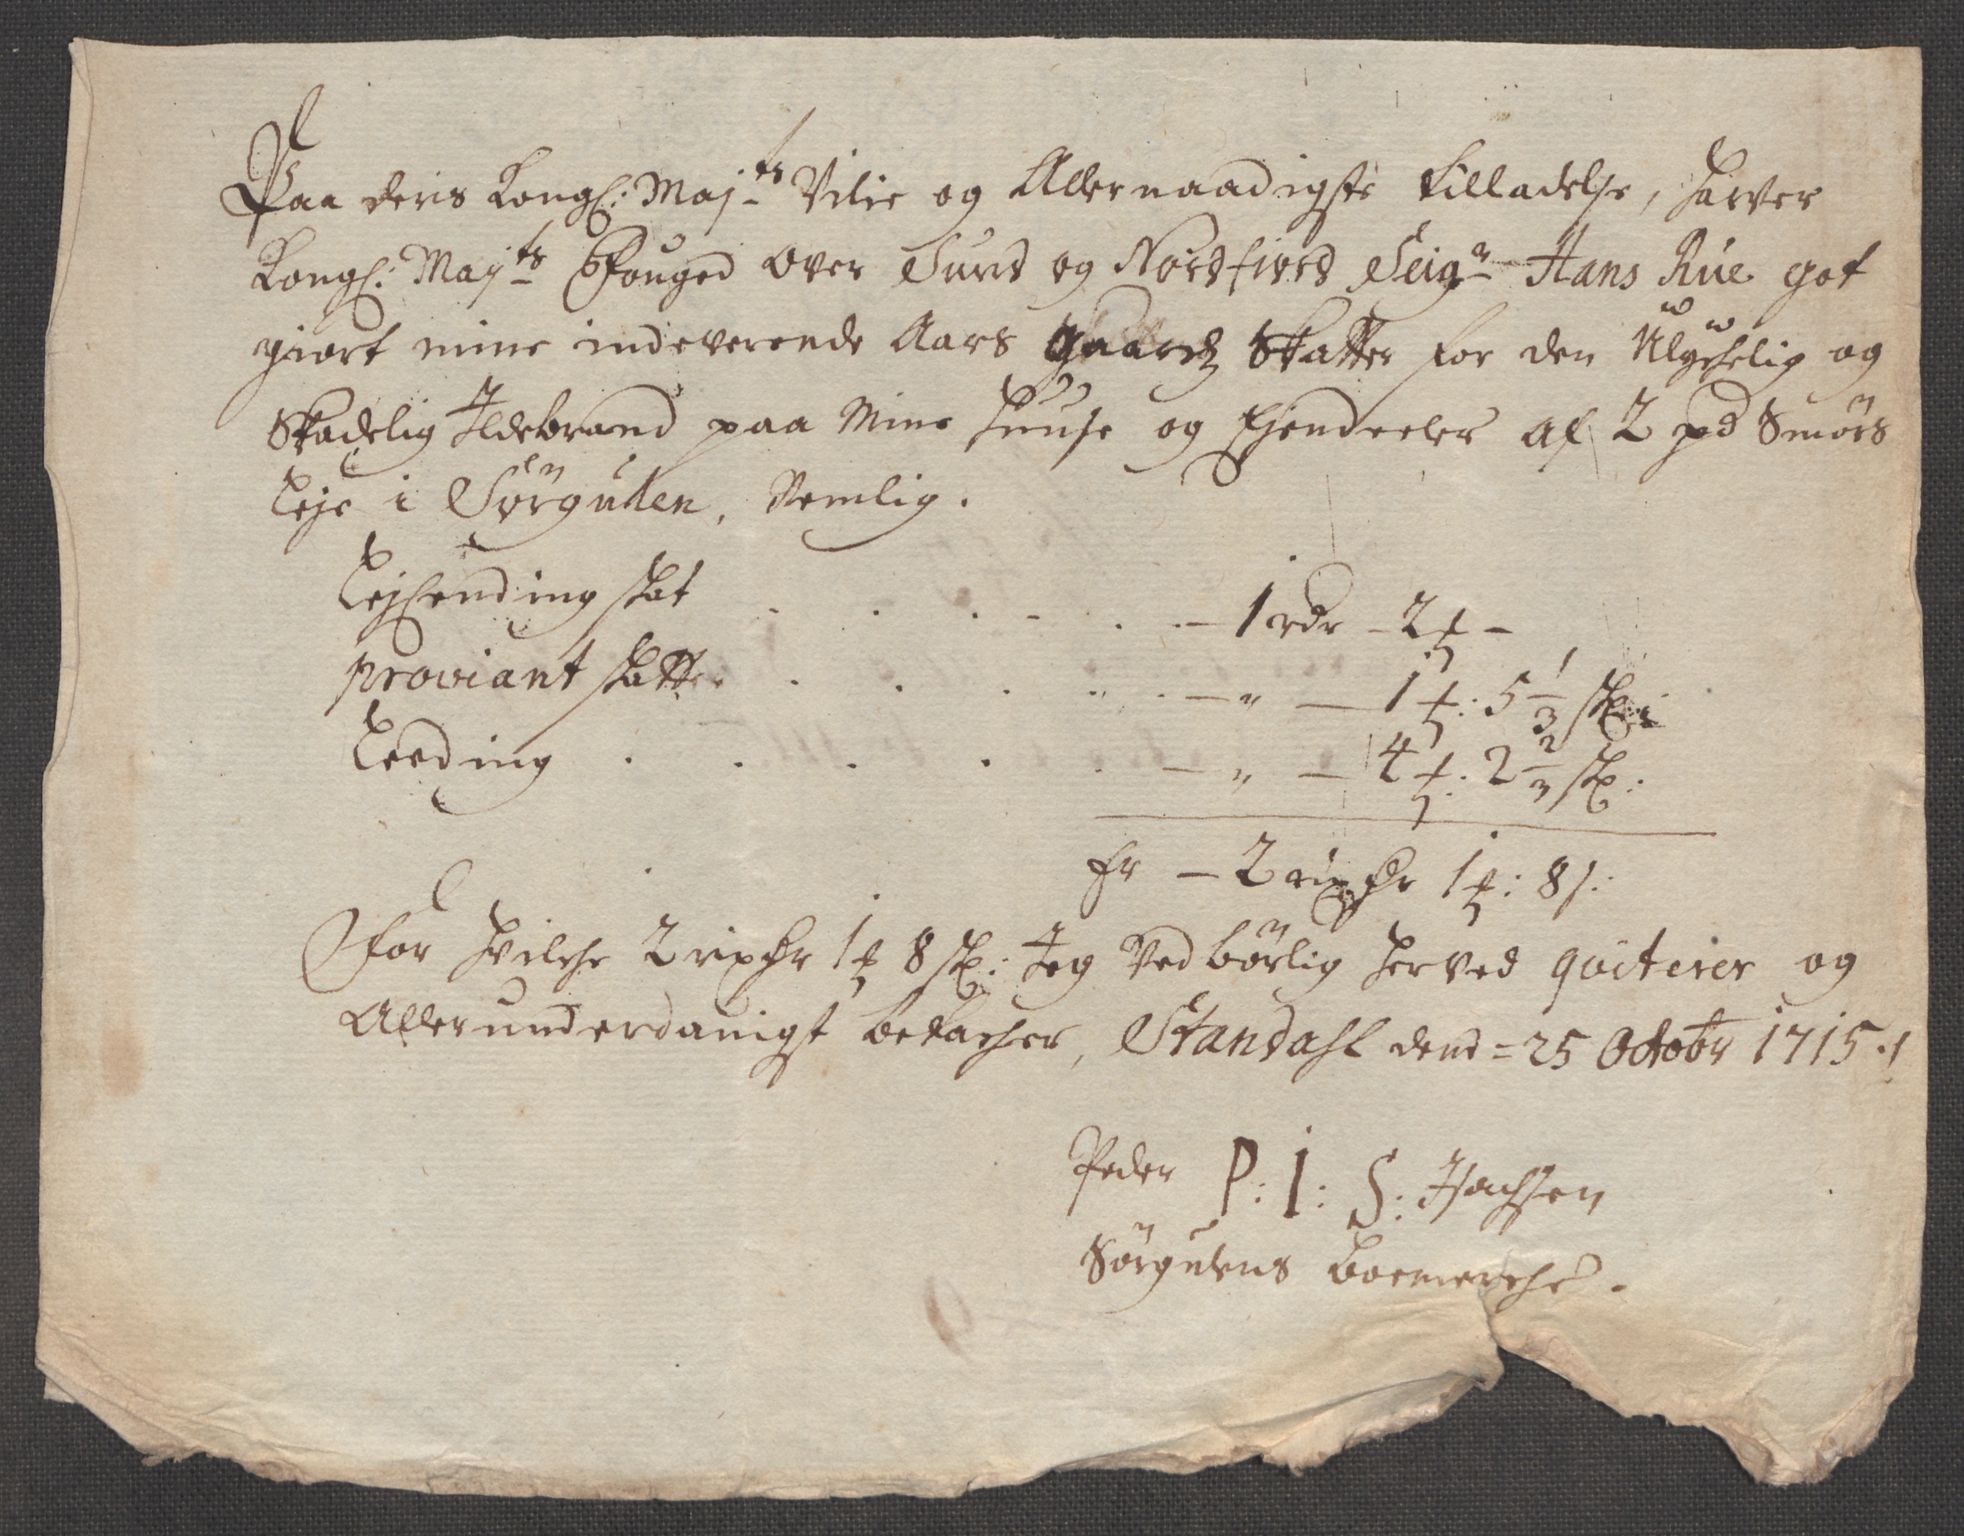 Paa deris Kongl: Maj.ts Vilie og Allernaadigste tilladelse, hafver
Kongl: Maj.ts Fouged over Sund og Nordfiord Seig.r Hans Rüe got
giort mine indeverende Aars gaards Skatter for den Ulychelig og
Skadelig Ildebrand paa Mine Huuse og Ejendeeler af 2 pd Smörs
leje i Sörgulen, Nemlig.
Lejlending skat . . . . . . . — 1 rdr — 2 ₰ —
proviant skatter . . . . . — „ — 1 ₰: 5 1/3 sk:
Leeding . . . . . — „ — 4 ₰: 2 2/3 sk:
Er — 2 rixdr 1 ₰: 8 s:
For hvilche 2 rixdr 1 ₰ 8 sk: Jeg Ved börlig herved qviterer og
Allerunderdanigst betacher, Standahl dend = 25 Octobr 1715 ./
Peder P: I: S: Isachsen
Sörgulens boemerche.